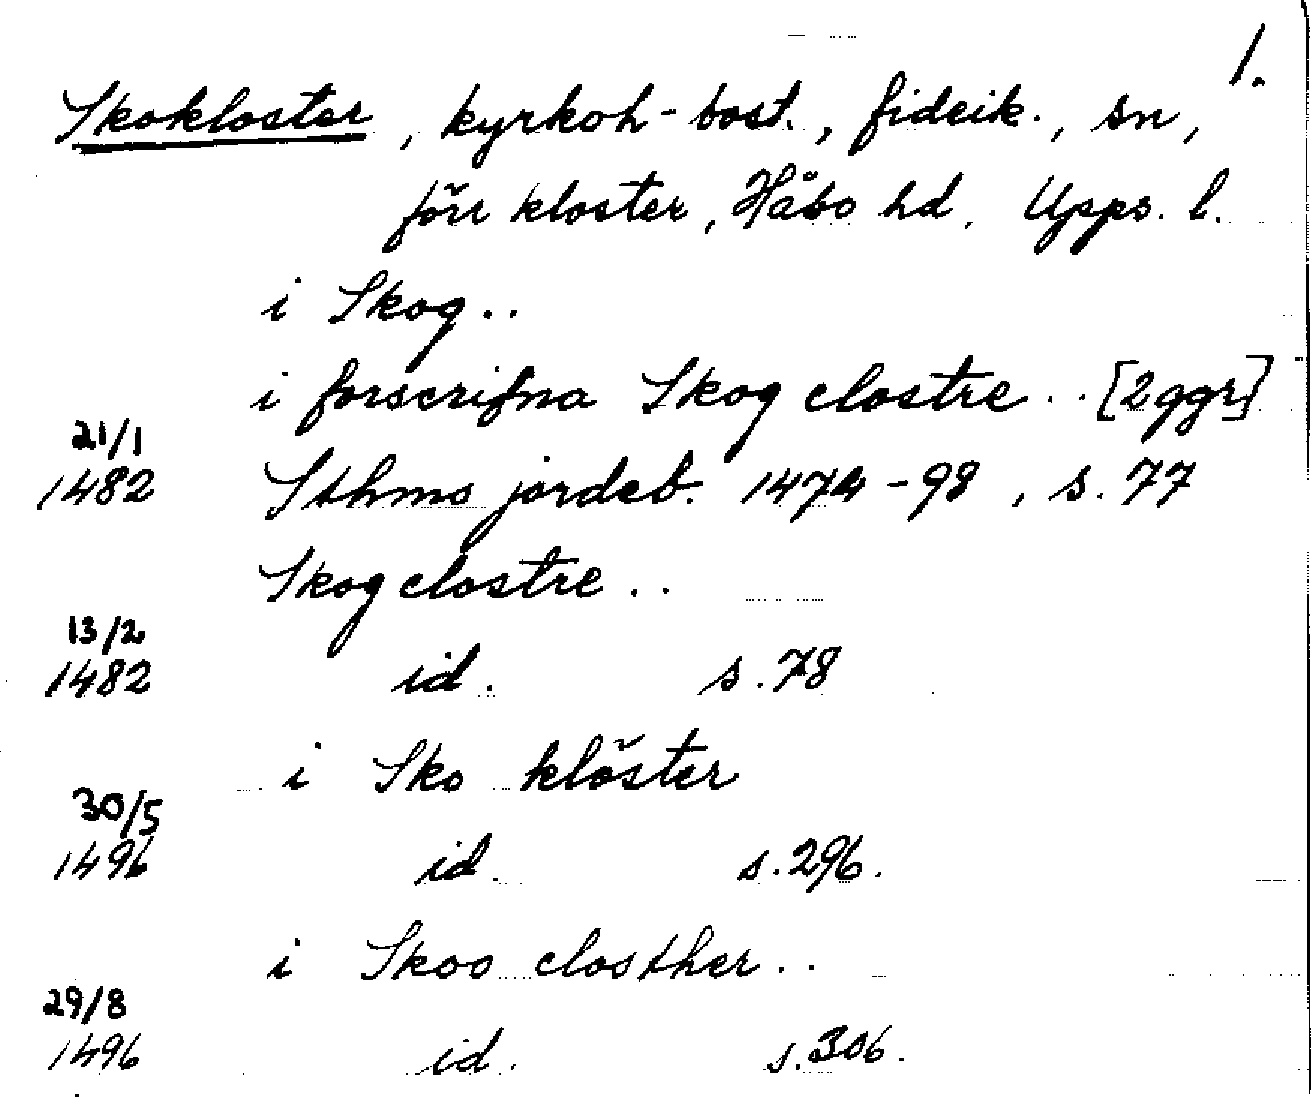 1.
Skokloster, kyrkoh-bost., fideik., sn,
förr kloster, Håbo hd, Upps. l.
i Skog..
i forscrifna Skog clostre .. [2ggr]
21/1
1482 Sthms jordeb. 1474-98, s. 77
Skog clostre ..
13/2
1482 id. s. 78
i Sko klöster
30/5
1496 id. s. 296.
i Skoo closther ..
29/8
1496 id. s. 306.